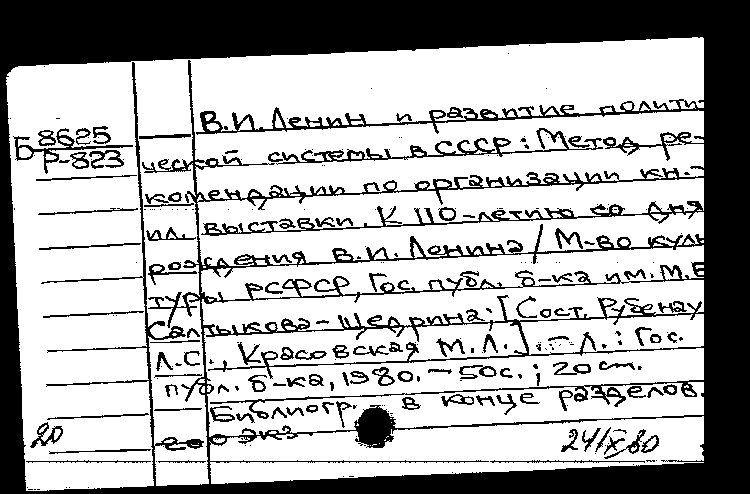 В.И.Ленин и развитие полити-
Б 8625
Р-823
ческой системы в СССР: Метод. ре-
комендации по организации кн.-
ил. выставки. К 110-летию со дня
рождения В.И.Ленина/М-во куль
туры РСФСР, Гос. публ. б-ка им. М.Е
Салтыкова-Щедрина; [Сост. Рубенау
Л.С., Красовская М.Л.]. - Л.: Гос.
публ. б-ка, 1980. - 50с.; 20см.
Библиогр. - в конце разделов.
20 200 экз.
24/X 80